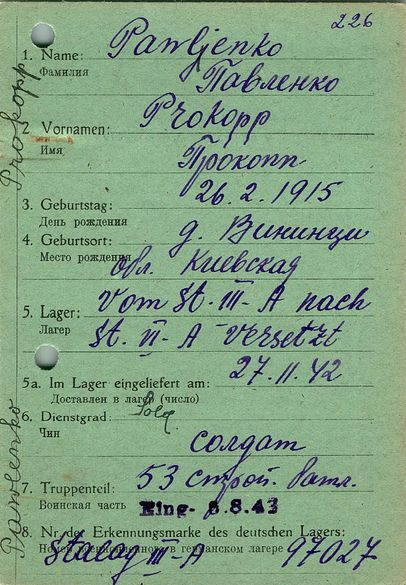 226
1. Name: Pawljenko
Фамилия
Павленко
2. Vornamen: Prokopp
Имя
Прокопп
26.2.1915
3. Geburtstag:
День рождения
4. Geburtsort: д. Винницы
Место рождения обл. Киевская
5. Lager: Vom St. III-A nach
Лагер St. VI-A versetzt
27.11.42
5a. Im Lager eingeliefert am:
Доставлен в лагер (число)
6. Dienstgrad: Sold
Чин
солдат
7. Truppenteil: 53 строй. батл.
Воинская часть Eing. 8.8.43
8. Nr. der Erkennungsmarke des deutschen Lagers:
Stalag III-A 97027
Prokopp
Pawlenko